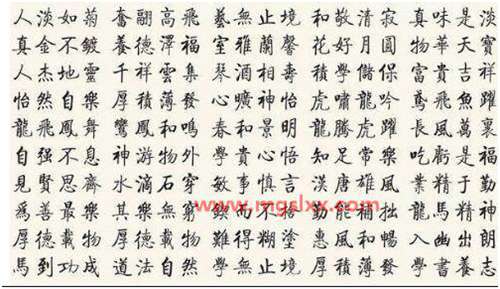 人淡如菊 奮翮高飛 藝無止境 和敬清寂 真味是淡
真金不鍍 養德澤福 室雅蘭馨 花好月圓 物華天寶
人杰地靈 千祥雲集 琴酒相壽 積學儲保 富貴吉祥
怡然自樂 厚積薄發 心曠神怡 虎嘯龍吟 鳶飛魚躍
龍飛鳳舞 鸞鳳和鳴 春和景明 龍騰虎躍 長風萬裏
自强不息 神游物外 學貴心悟 知足常樂 吃虧是福
見賢思齊 水滴石穿 敏事慎言 漢唐雄風 業精于勤
為善最樂 其樂無窮 而不 勤能補拙 龍馬精神
www.mgslxx.com
厚德載物 厚德載物 難得糊塗 惠風和暢 入幽出朗
馬到功成 道法自然 學無止境 厚積薄發 學書養志